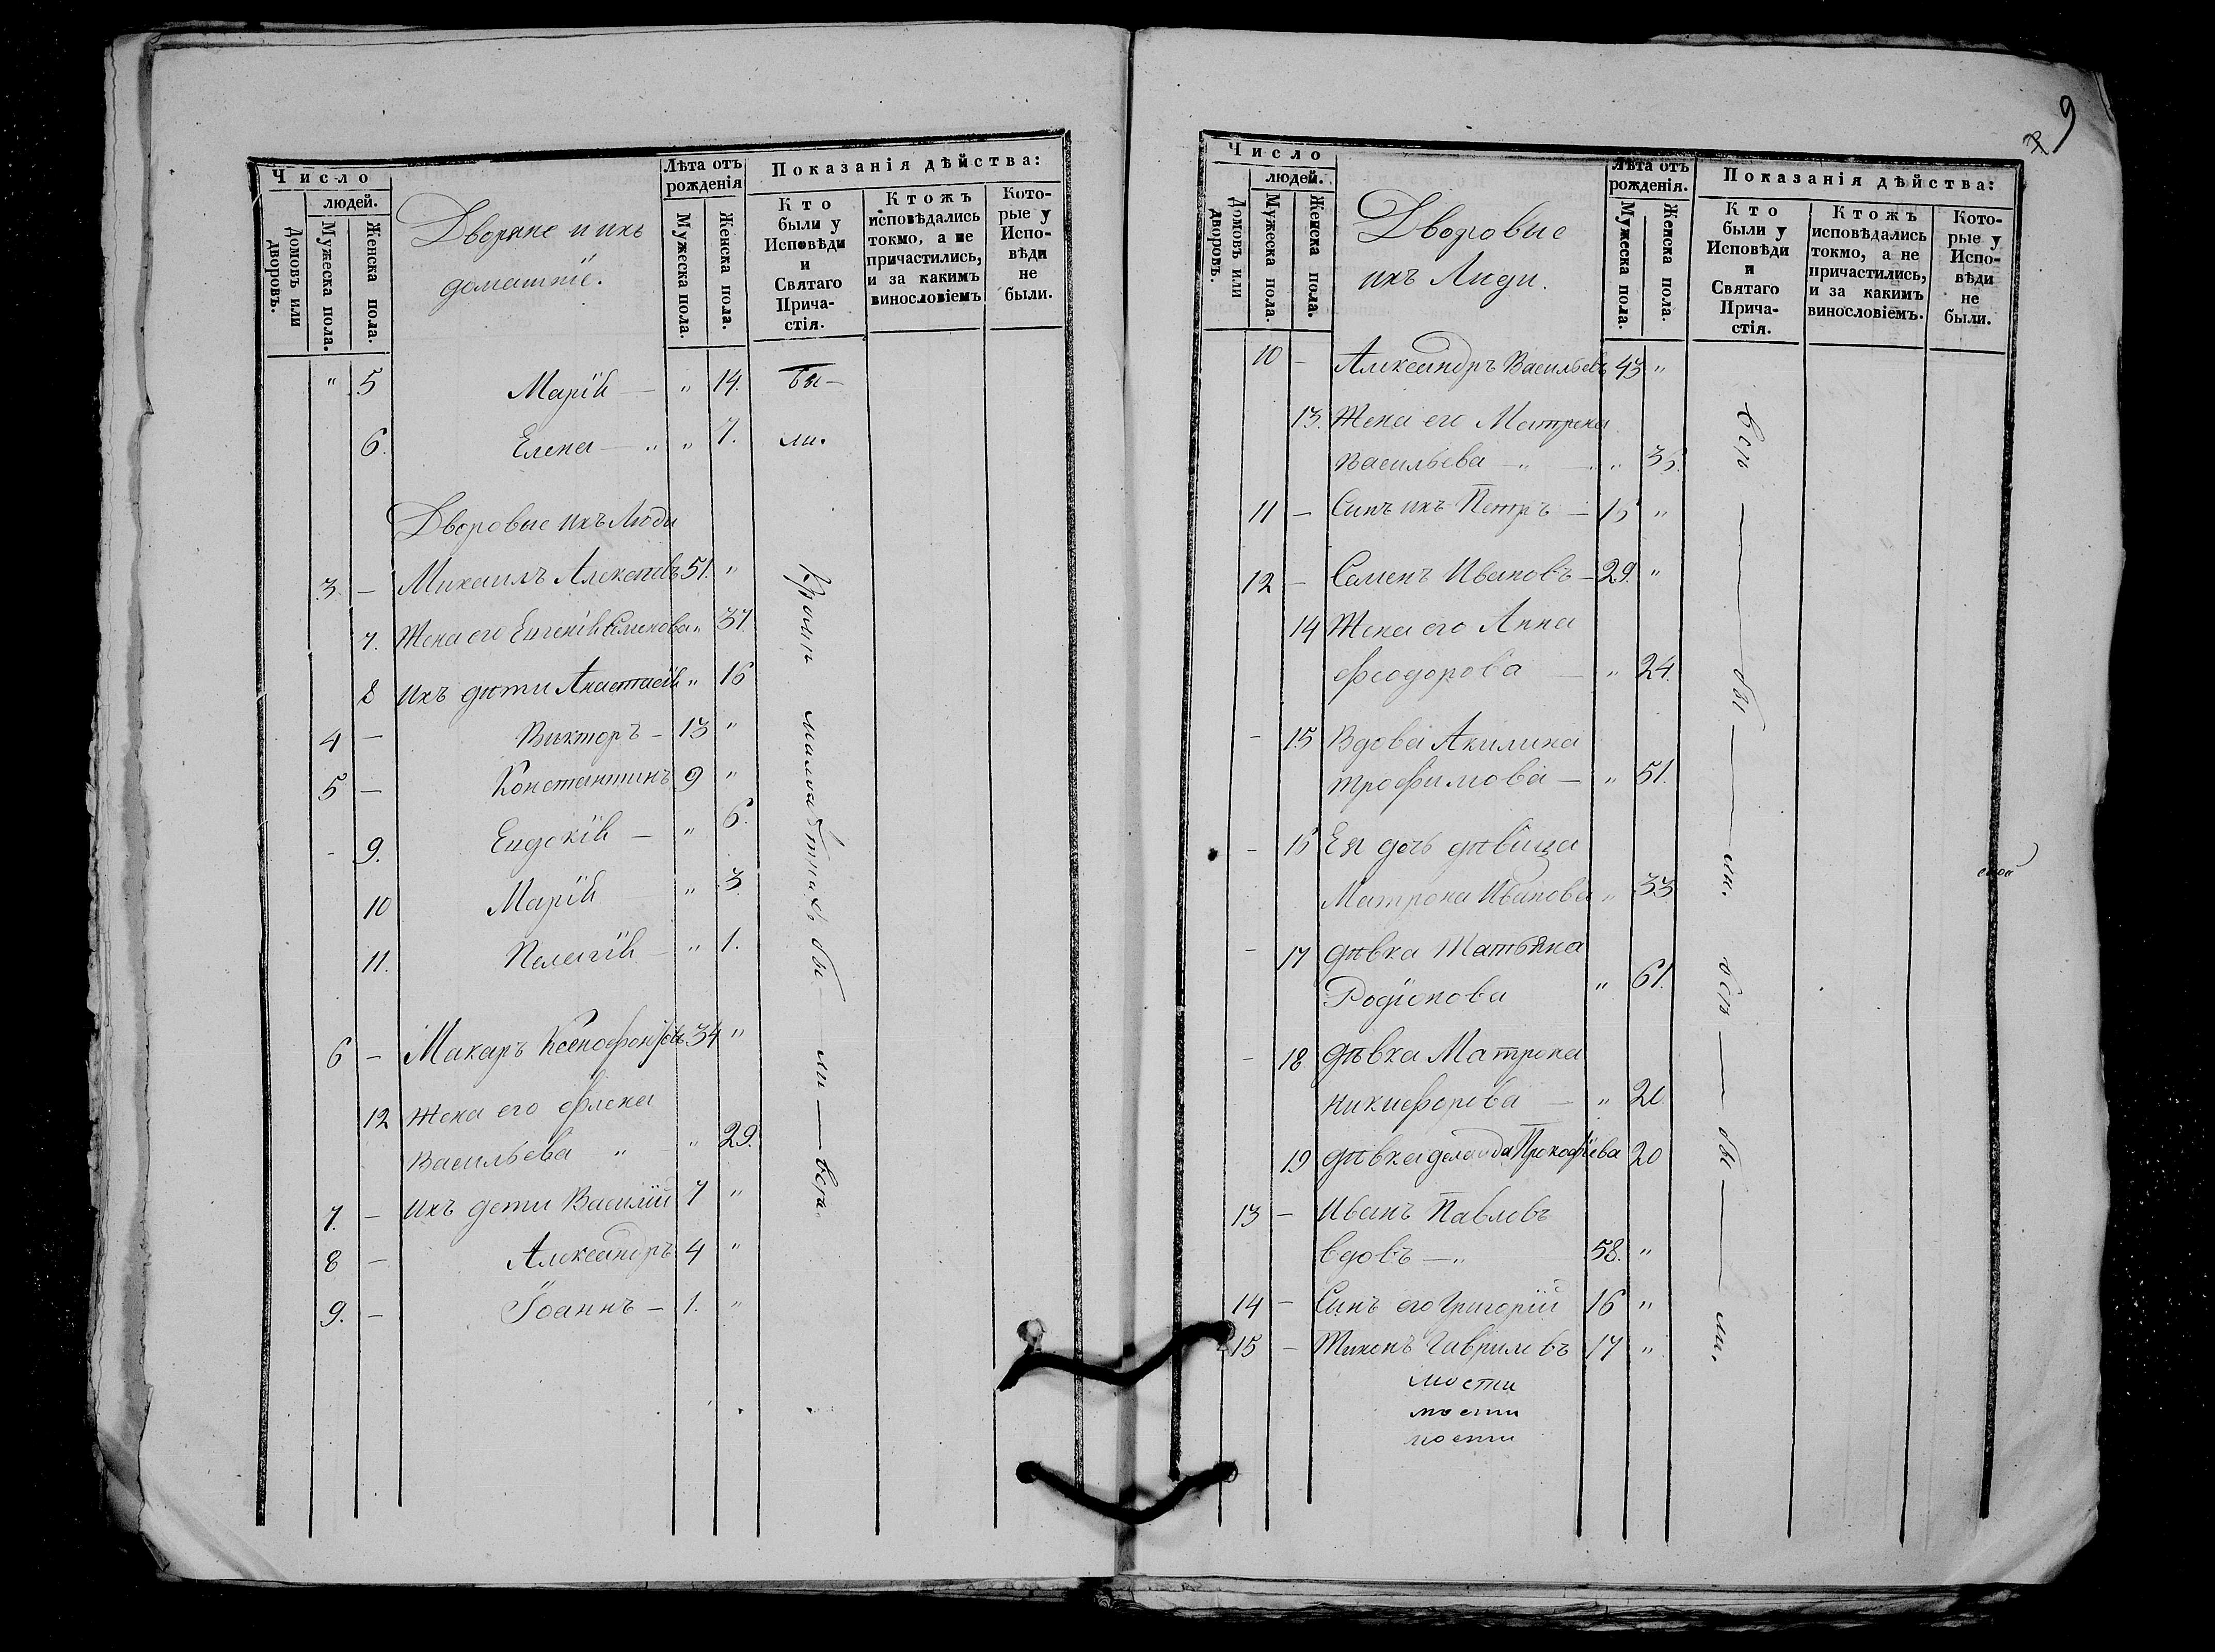 Число
людей.
Домовъ или дворовъ.
Мужеска пола.
Женска пола.
Дворяне и ихъ
домашніе.
Лѣта отъ
рожденія
Мужеска пола.
Женска пола.
Показанія дѣйства:
Кто
были у
Исповѣди
и
Святаго
Прича-
стія.
Ктожъ
исповѣдались
токмо, а не
причастились,
и за какимъ
винословіемъ
Кото-
рые у
Испо-
вѣди
не
были.
" 5 Марія — " 14. бы-
6. Елена — " " 7. ли.
Дворовые ихъ Люди
3. — Михаилъ Алексѣевъ 51. "
7. Жена его Евгенія Семенова " 37.
8 Ихъ дѣти Анастасія " 16
4 — Викторъ — 13 "
5 — Константинъ 9 "
- 9. Евдокія — " 6.
10 Марія " 3
11. Пелагія — " 1.
6 — Макаръ Ксенофонтовъ 34 "
12 Жена его Елена
Васильева " " 29.
7. — Ихъ дети Василій 7 "
8 — Александръ 4 "
9. — Іоаннъ — 1. "
Кромѣ малолѣтнихъ бы — ли — всѣ.
9
Число
людей.
Домовъ или дворовъ.
Мужеска пола.
Женска пола.
Дворовые
ихъ Люди.
Лѣта отъ
рожденія.
Мужеска пола.
Женска пола.
Показанія дѣйства:
Кто
были у
Исповѣди
и
Святаго
Прича-
стія.
Ктожъ
исповѣдались
токмо, а не
причастились,
и за какимъ
винословіемъ.
Кото-
рые у
Испо-
вѣди
не
были.
10 — Александръ Васильевъ 43 "
13. Жена его Матрена
Васильева — " — "
11 — Сынъ ихъ Петръ — "
12 — Семенъ Ивановъ — 29. "
14 Жена его Анна
Феодорова — " 24.
- 15 Вдова Акилина
Трофимова — " 51.
- 16 Ея дочь дѣвица
Матрона Иванова " 33
- 17 Дѣвка Татьяна
Родіонова " 61.
- 18 Дѣвка Матрона
Никифорова — " 20
19 Дѣвка Прокофіева 20
13 — Иванъ Павловъ
вдовъ — " 58. "
14 — Сынъ его Григорій 16 "
15 — Тихонъ Гавриловъ 17 "
мости
мости
мости
Всѣ — бы — ли. Всѣ — бы — ли.